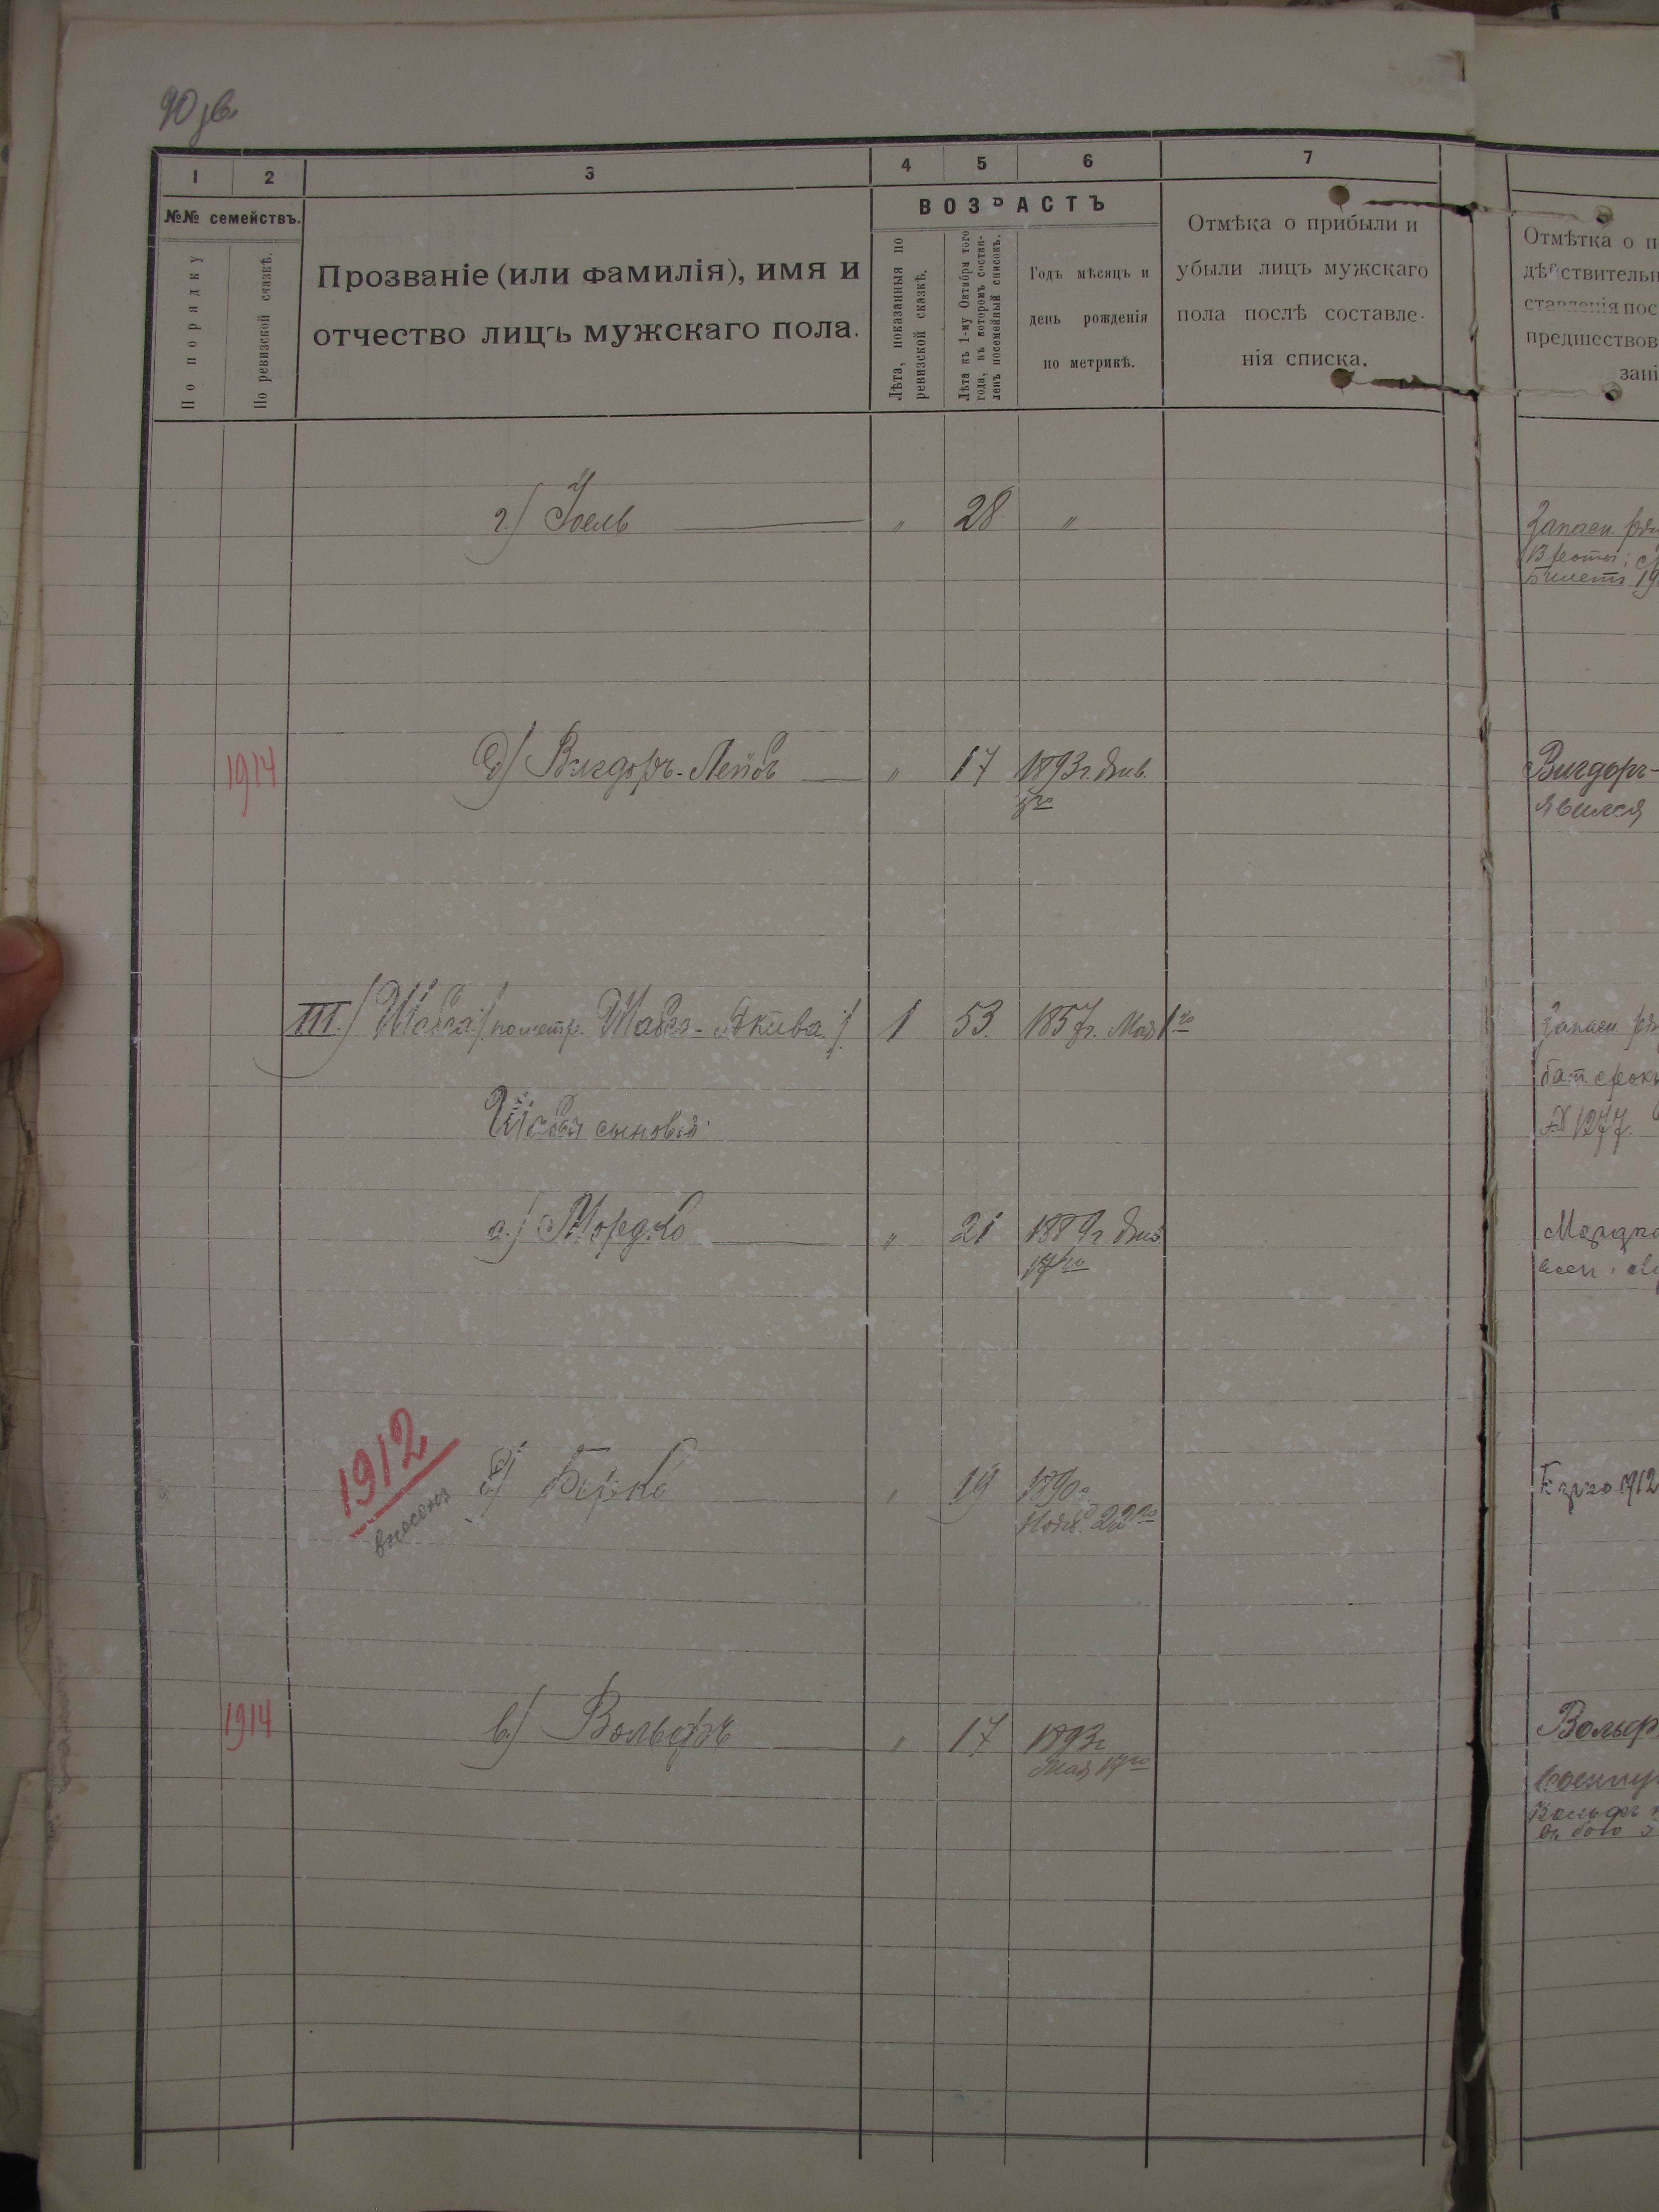 90 зв
1 2 3 4 5 6 7
№№ семействъ.
По порядку
По ревизской сказкѣ.
Прозваніе (или фамилія), имя и
отчество лицъ мужскаго пола.
ВОЗРАСТЪ
Лѣта, показанныя по
ревизской сказкѣ.
Лѣта къ 1-му Октября того
года, въ которомъ состав-
ленъ посемейный списокъ.
Годъ мѣсяцъ и
день рожденія
по метрикѣ.
Отмѣка о прибыли и
убыли лицъ мужскаго
пола послѣ составле-
нія списка.
Отмѣтка о п
дѣйствительн
ставленія пос
предшествов
зані
г.) Іоель " 28 "
Запасн. ряд
Билетъ 19
1914 д) Вигдоръ-Лейбъ " 17 1893 г. Янв.
Вигдоръ-
явился
III.) Шевса /: по метр. Шавса-Акива :/ 1 53. 1857 г. Мая 1го
Запасн. ряд
№ 1277.
сыновья:
а.) Мордко " 21 1889 г.
17го
Мордко
1912
внесенъ
б) Берко " 19 1890 г.
Нояб. 22го
1912
1914 в.) Вольфъ " 17 1893 г.
Мая 19го
Вольф
Вольфъ